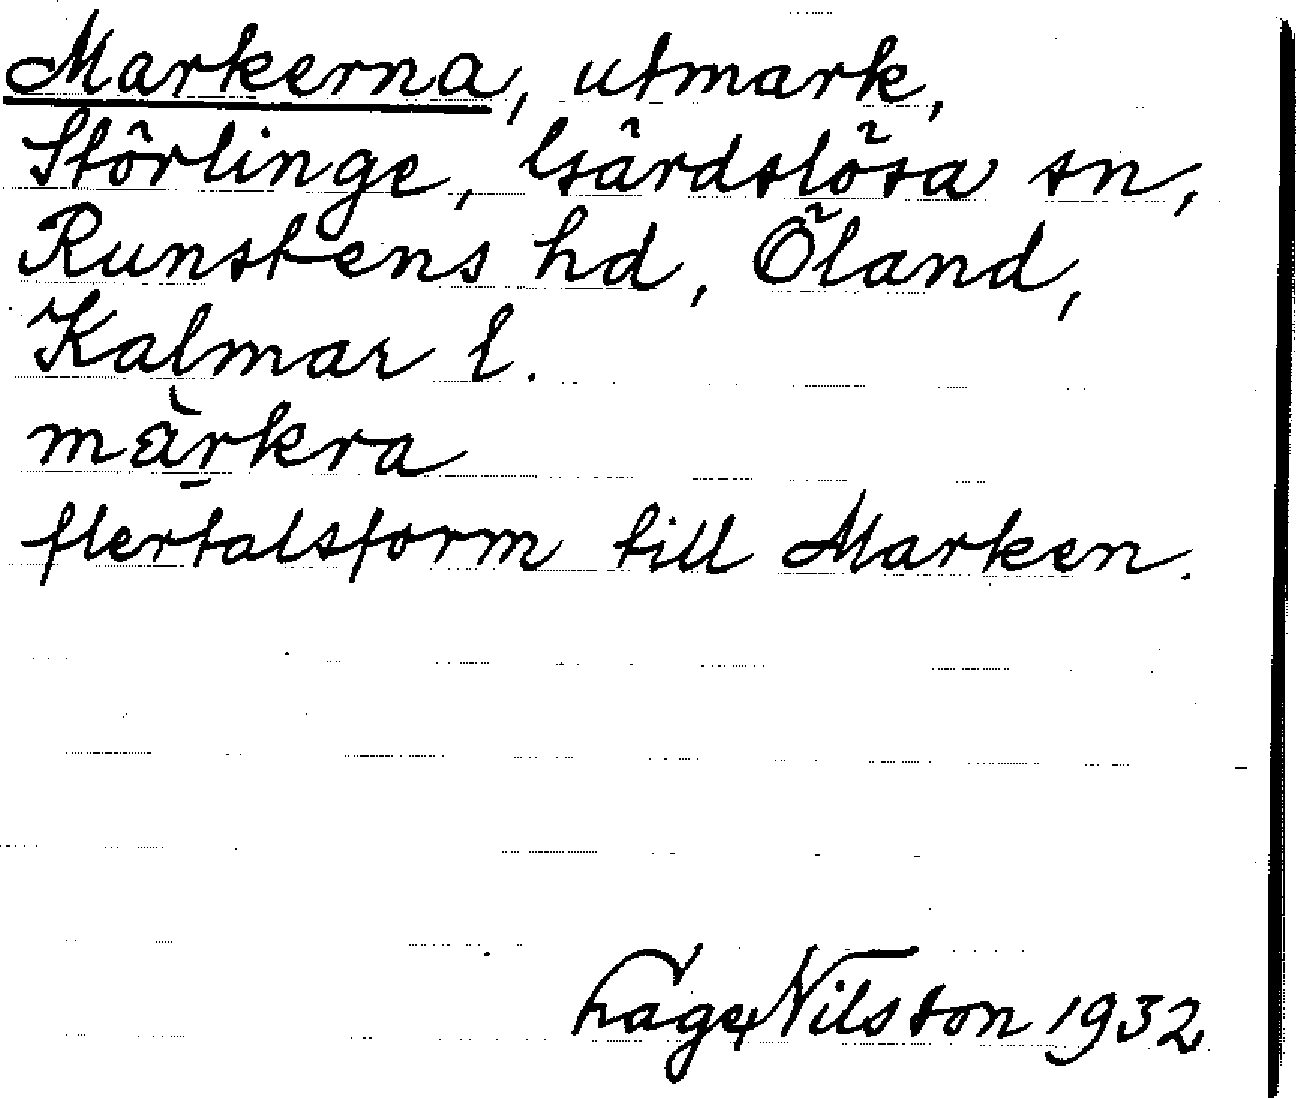 Markerna, utmark,
Störlinge, Gärdslösa sn,
Runstens hd, Öland,
Kalmar l.
märkra
flertalsform till Marken.
Nilsson 1932